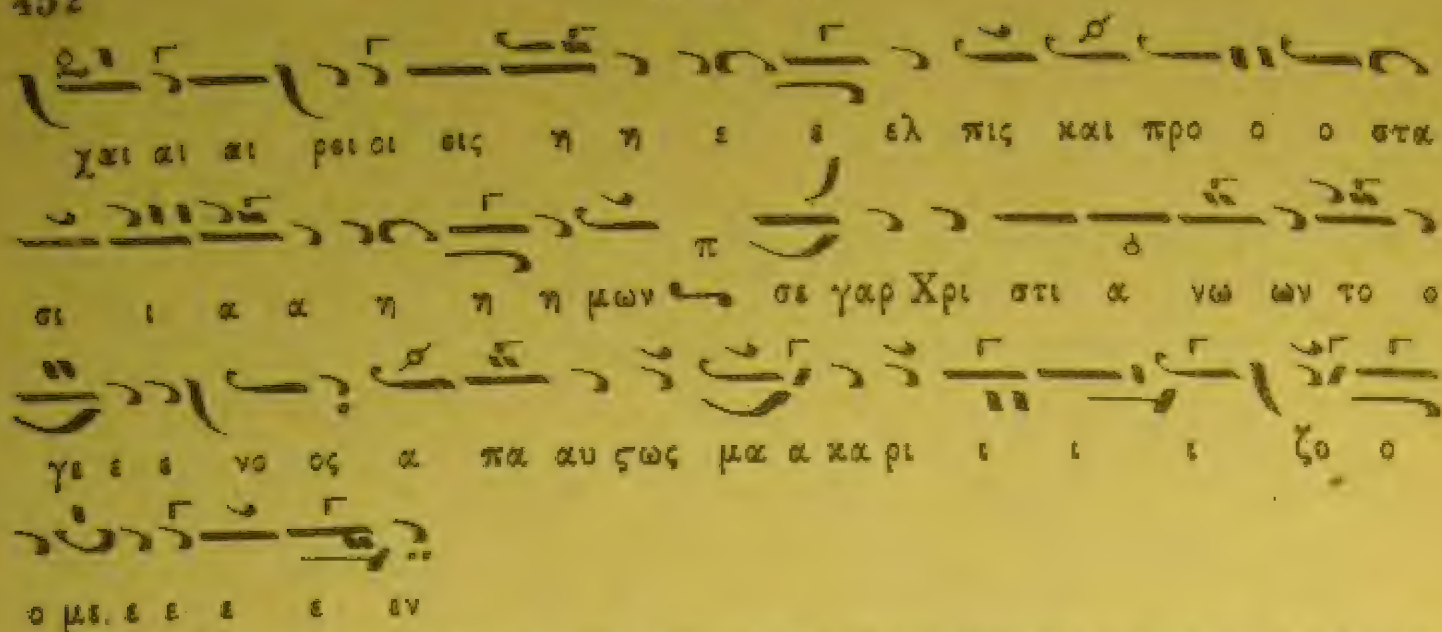 χαι αι αι ρει οι σις η η ε ε ελ πις και προ ο ο στα
σι ι α α η η η μων σε γαρ Χρι στι α νω ων το ο
γε ε ε νο ος α πα αυ ςως μα α κα ρι ι ι ι ζο ο
ο με. ε ε ε ε εν